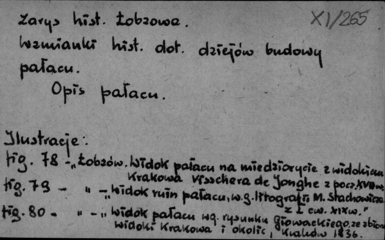 Zarys hist. Łobzowa.
XI/265
Wzmianki hist. dot. dziejów budowy
pałacu.
Opis pałacu.
Ilustracje:
fig. 78 - „Łobzów. Widok pałacu na miedziorycie z widokiem
Krakowa Visschera de Jonghe z pocz. XVII w.
fig. 79 - " - Widok ruin pałacu, w.g. litografii M. Stachowicza
z I ćw. XIX w."
fig. 80 - " - Widok pałacu wg. rysunku Głowackiego, ze zbioru
widoki Krakowa i okolic, Kraków 1836.